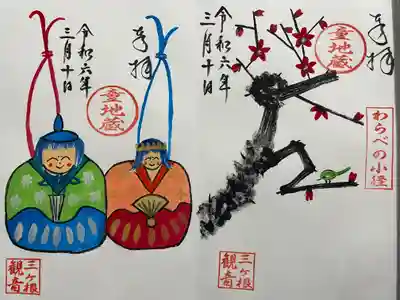 奉拝
令和六年
三月十日
童地蔵
三ヶ根
観音
奉拝
令和六年
三月十日
童地蔵
わらべの小径
三ヶ根
観音